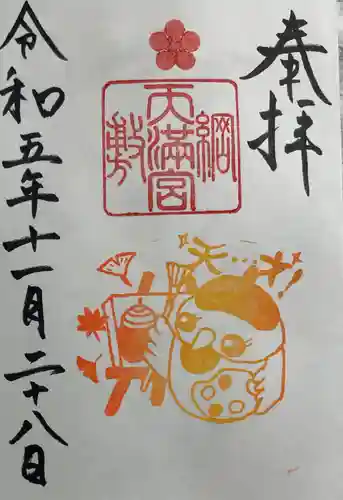 奉拝
綱敷天満宮
天…才!
令和五年十一月二十八日